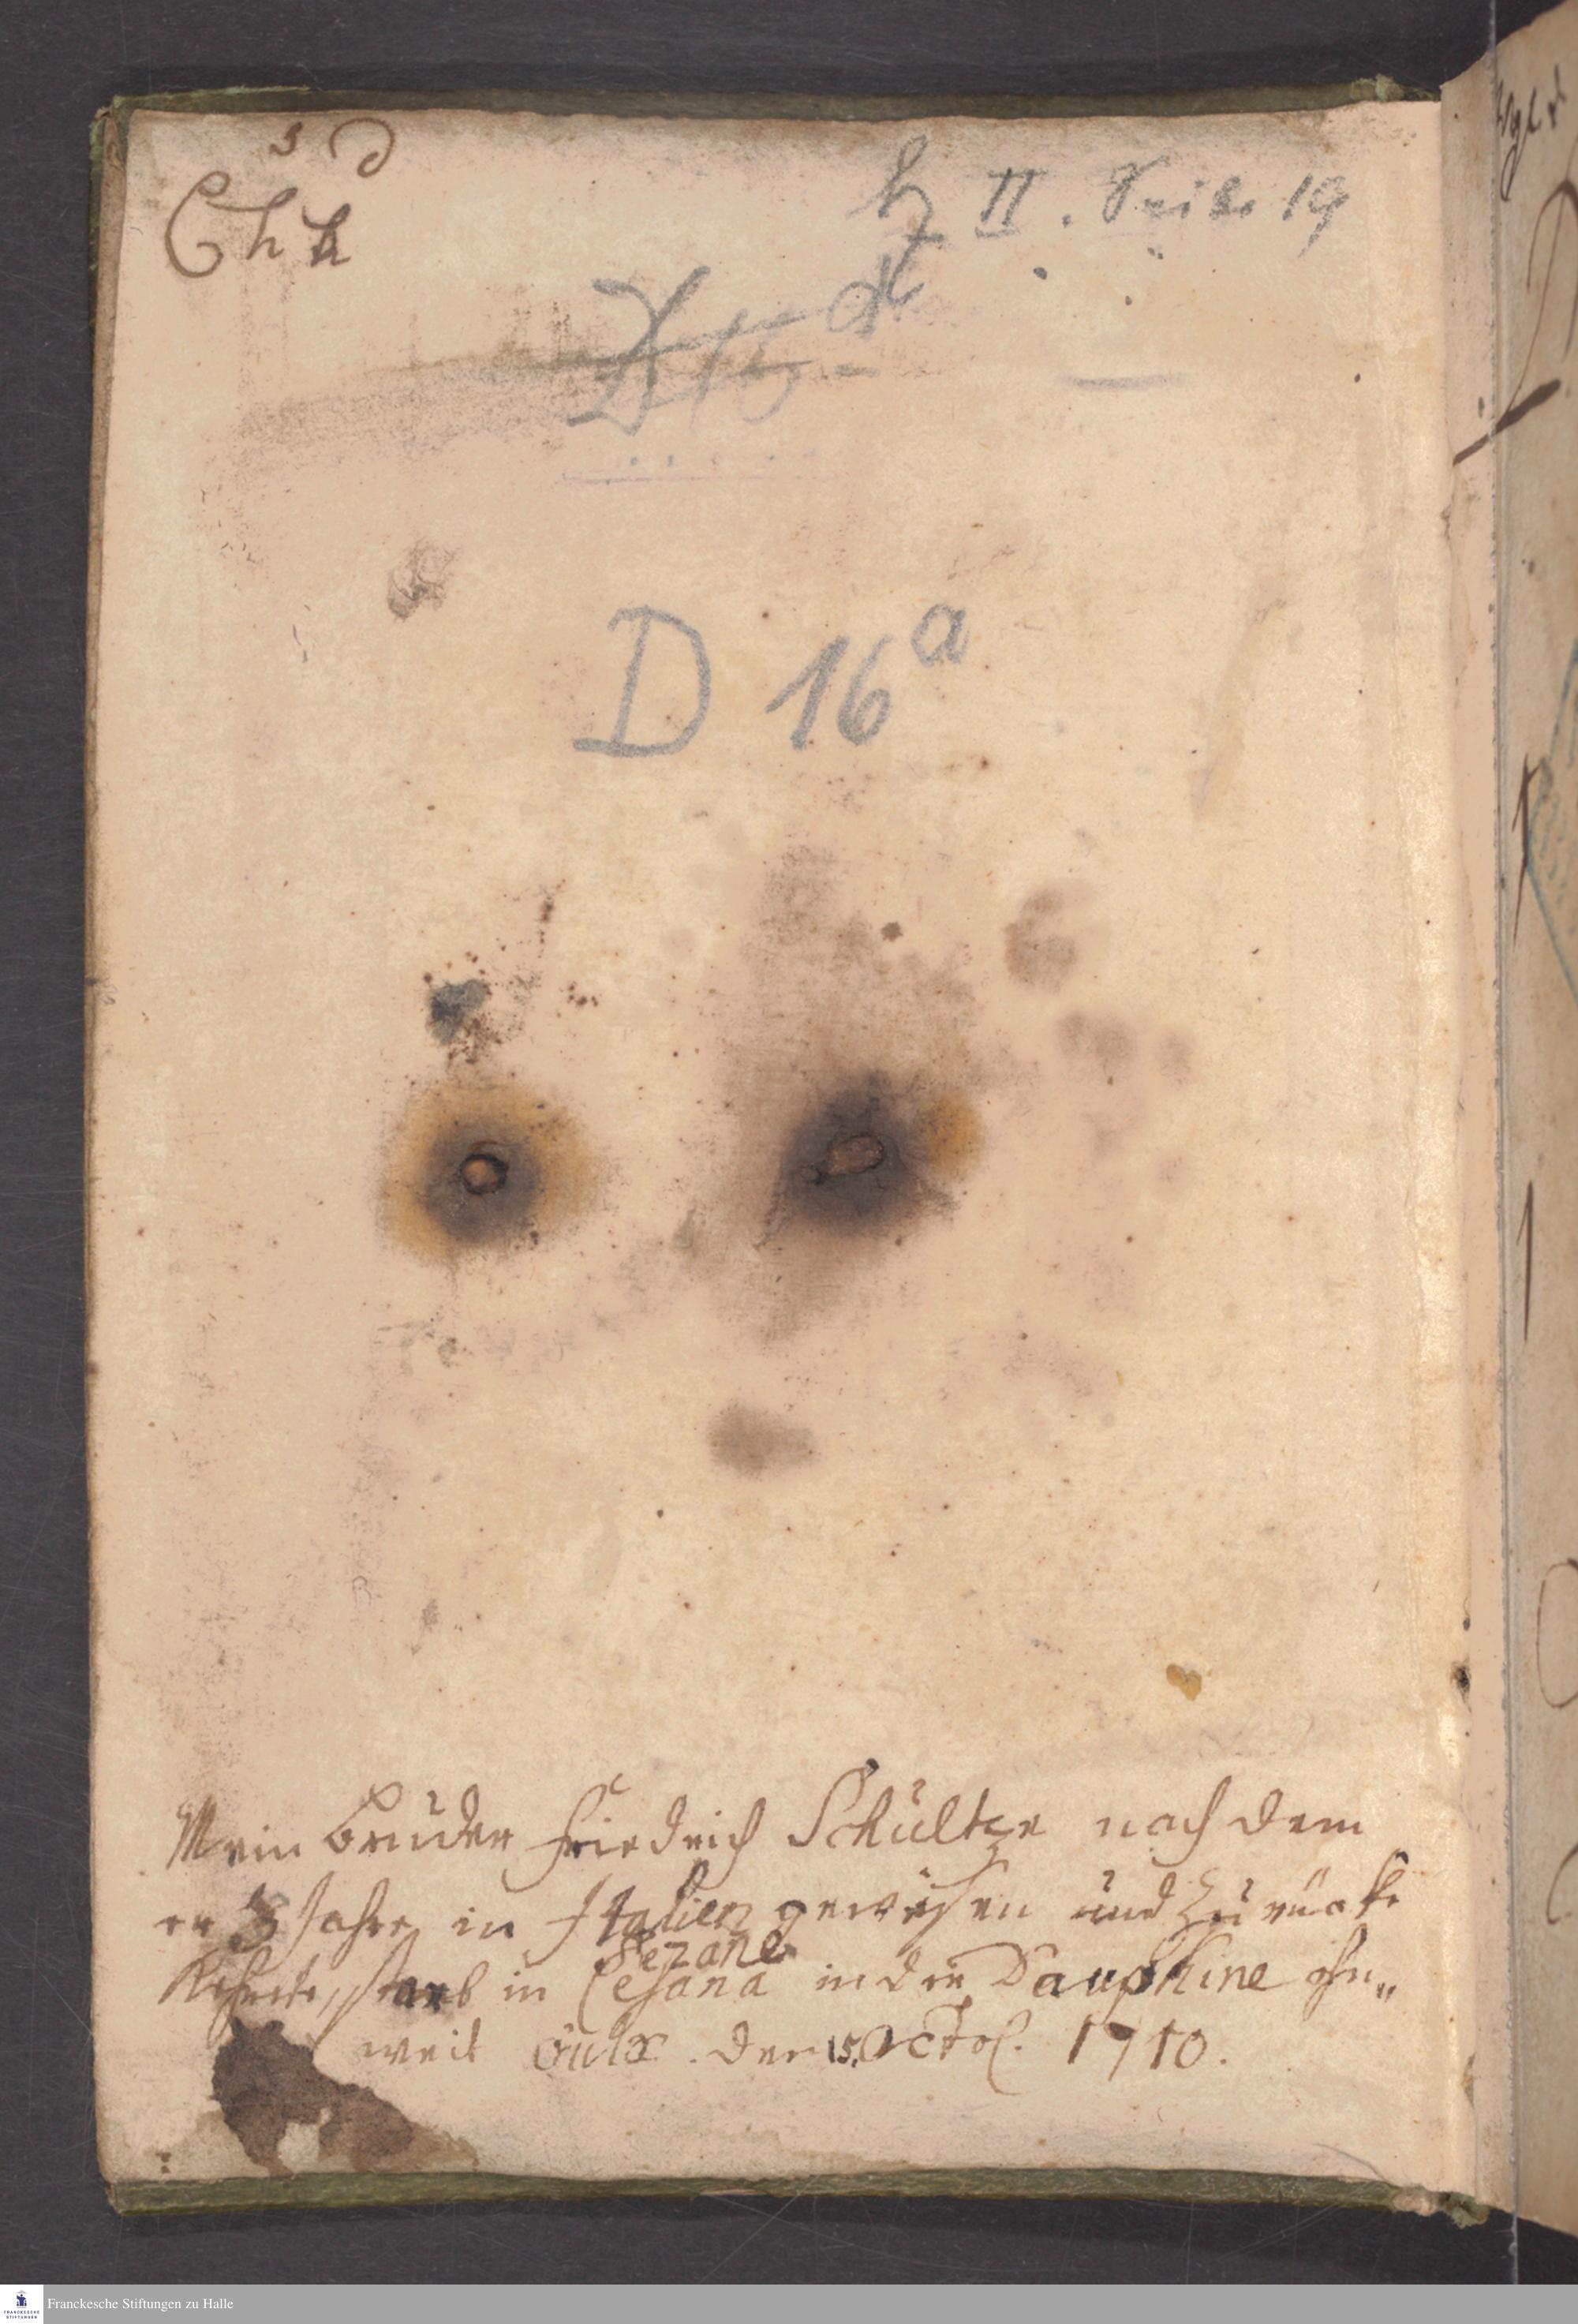 Ch h
II. Reihe 19
D 16
D 16 a
Mein Bruder Friedrich Schultze nach dem
er 3 Jahre in Italien gewesen und zurücke
Sezane
Kehrete, starb in Cesana in der Dauphine ohn„
weit Oulx. den 15. Octob. 1710.
Franckesche Stiftungen zu Halle